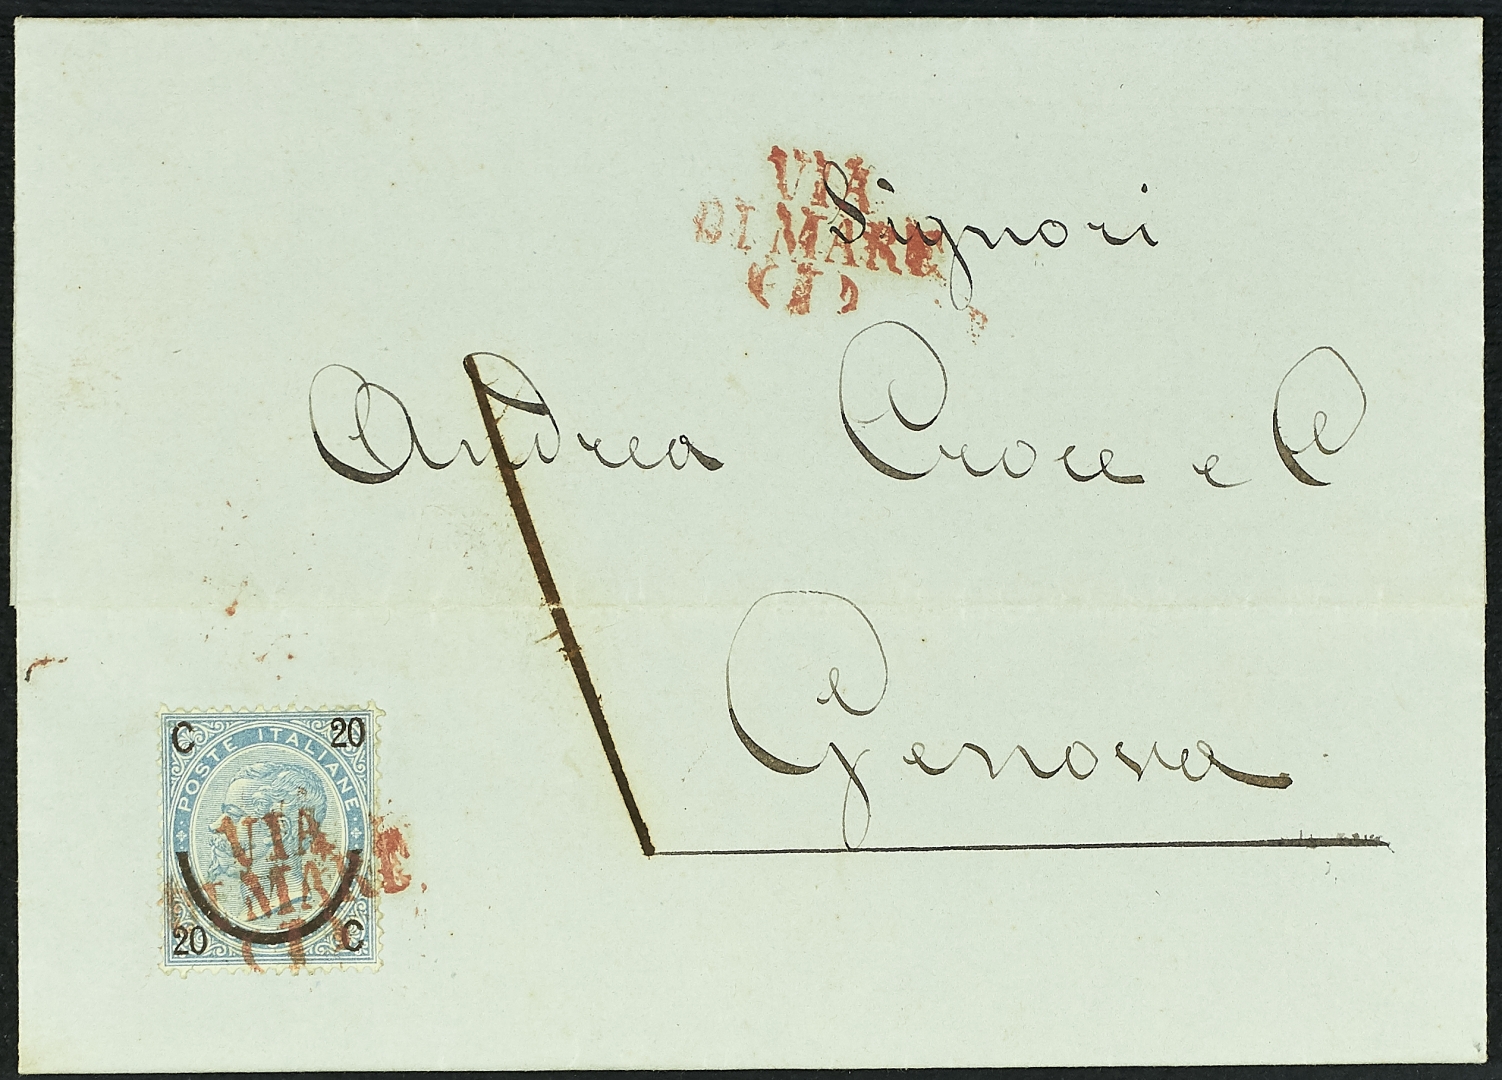 VIA
DI MARE
(I)
Signori
Andrea Croce e C
Genova
C 20
POSTE ITALIANE
VIA
DI MARE
(I)
20 C